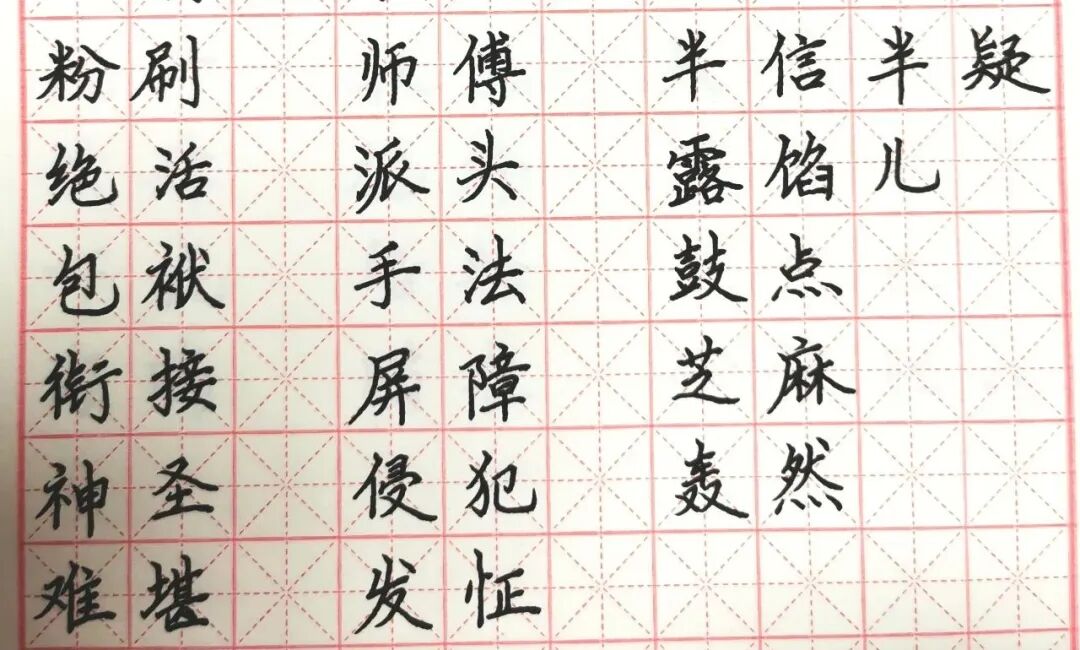 粉刷 师傅 半信半疑
绝活 派头 露馅儿
包袱 手法 鼓点
衔接 屏障 芝麻
神圣 侵犯 轰然
难堪 发怔